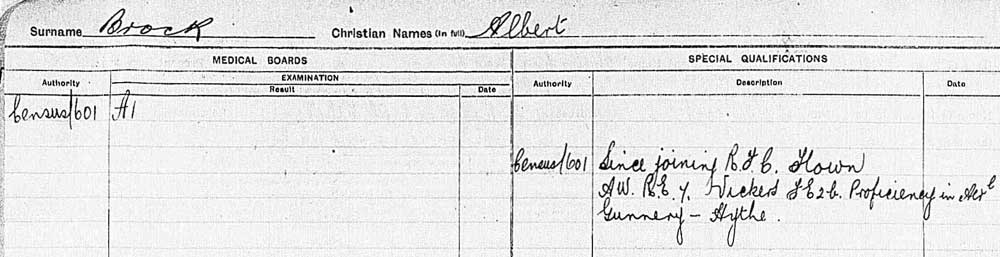 Surname Brock Christian Names (in full) Albert
MEDICAL BOARDS SPECIAL QUALIFICATIONS
Authority EXAMINATION Result Date Authority Description Date
Census/601 A1
Census/601 Since joining R.F.C. Flown
A.W. R.E.7. Vickers F.E2b. Proficiency in Aerl
Gunnery – Hythe.